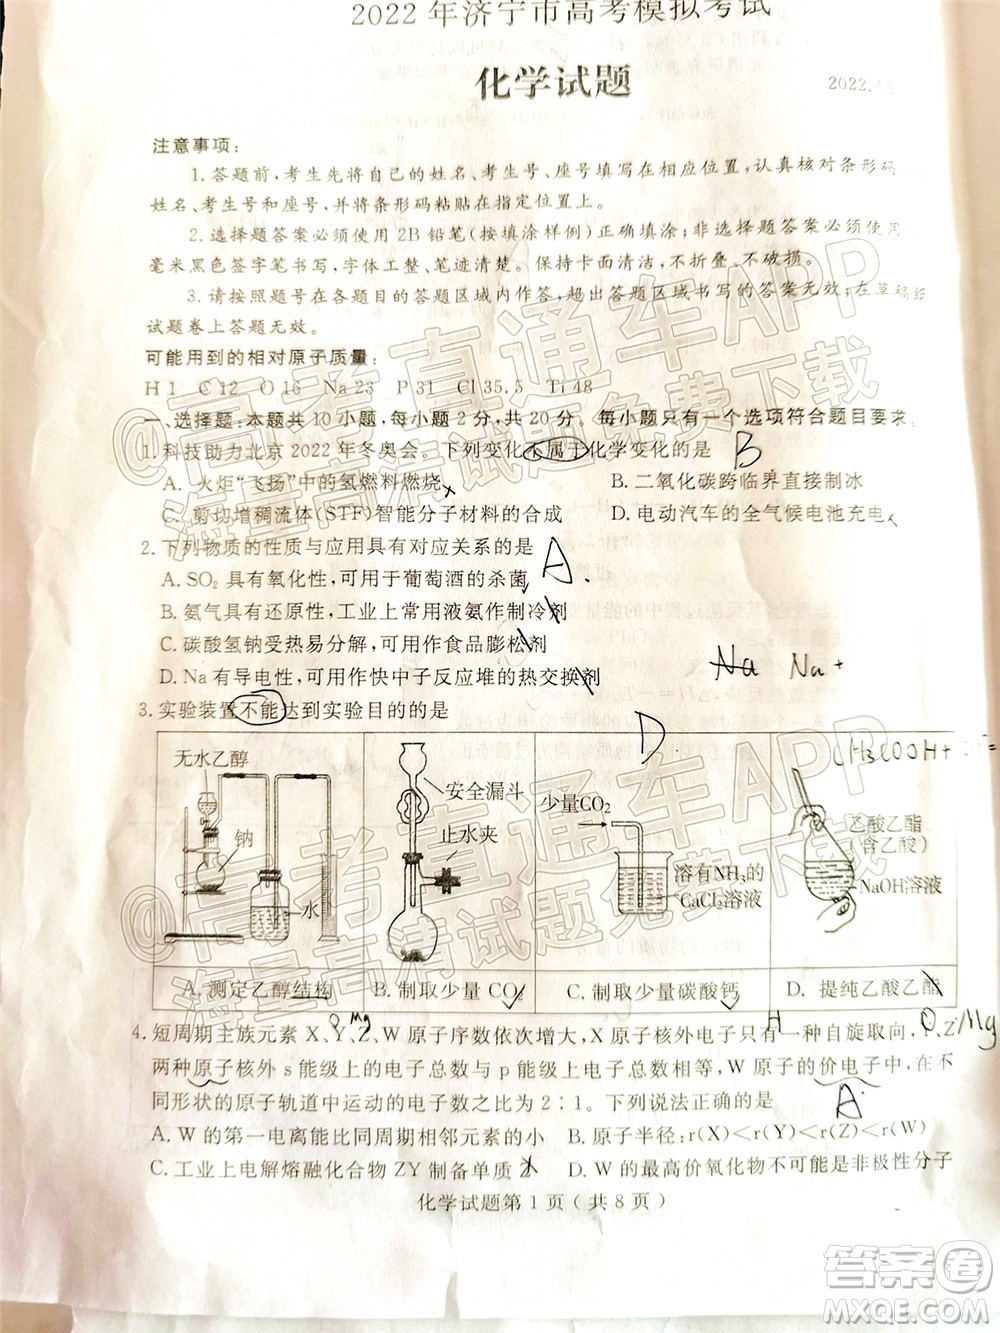 2022年济宁市高考模拟考试
化学试题
2022.
注意事项:
1.答题前,考生先将自己的姓名、考生号、座号填写在相应位置,认真核对条形码
姓名、考生号和座号,并将条形码粘贴在指定位置上。
2.选择题答案必须使用2B铅笔(按填涂样例)正确填涂;非选择题答案必须使用
毫米黑色签字笔书写,字体工整、笔迹清楚。保持卡面清洁,不折叠、不破损。
3.请按照题号在各题目的答题区域内作答,超出答题区域书写的答案无效;在草稿
试题卷上答题无效。
可能用到的相对原子质量:
H 1 C 12 O 16 Na 23 P 31 Cl 35.5 Ti 48
一、选择题:本题共10小题,每小题2分,共20分。每小题只有一个选项符合题目要求
1.科技助力北京2022年冬奥会。下列变化不属于化学变化的是 B
A. 火炬“飞扬”中的氢燃料燃烧 B.二氧化碳跨临界直接制冰
C. 剪切增稠流体(STF)智能分子材料的合成 D.电动汽车的全气候电池充电
2.下列物质的性质与应用具有对应关系的是 A
A.SO₂具有氧化性,可用于葡萄酒的杀菌
B.氨气具有还原性,工业上常用液氨作制冷剂
C.碳酸氢钠受热易分解,可用作食品膨松剂
D.Na有导电性,可用作快中子反应堆的热交换剂 Na Na+
3.实验装置不能达到实验目的的是 D
无水乙醇 钠 水
安全漏斗 止水夹
少量CO₂ 溶有NH₃的 CaCl₂溶液
CH₃COOH+
乙酸乙酯 (含乙酸) NaOH溶液
A. 测定乙醇结构 B.制取少量CO₂ C.制取少量碳酸钙 D. 提纯乙酸乙酯
O Mg H O Mg
4.短周期主族元素X、Y、Z、W原子序数依次增大,X原子核外电子只有一种自旋取向,Y、Z
两种原子核外s能级上的电子总数与p能级上电子总数相等,W原子的价电子中,在不
同形状的原子轨道中运动的电子数之比为2:1。下列说法正确的是 A
A.W的第一电离能比同周期相邻元素的小 B.原子半径:r(X)<r(Y)<r(Z)<r(W)
C.工业上电解熔融化合物ZY制备单质Z D.W的最高价氧化物不可能是非极性分子
化学试题第1页(共8页)
@高考直通车APP
海量高清试题免费下载
@高考直通车APP
海量高清试题免费下载
答案圈
MXQE.COM